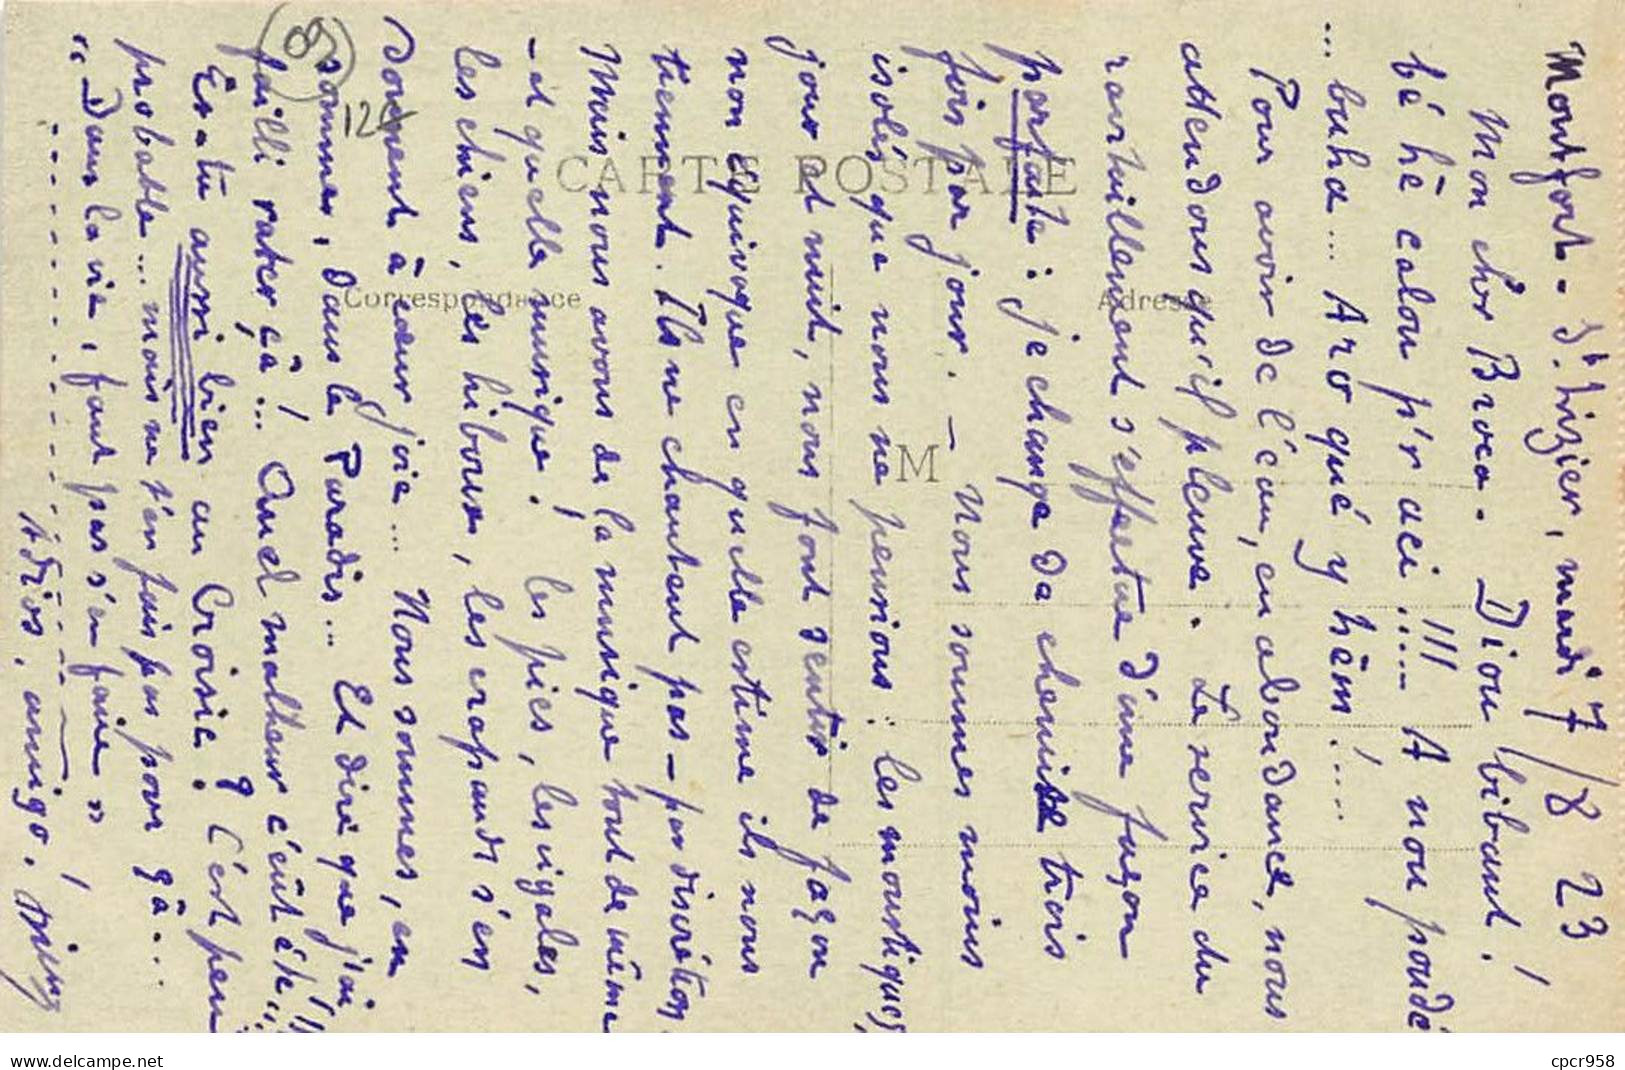 Montfort - St Vizier, mardi 7/8 23
Mon cher Broca. Diou bibant!
bé hè calou p'r aci!!!.... A nou poudé
... buha... Aro qué y hèm!....
Pour avoir de l'eau, en abondance, nous
attendons qu'il pleuve. Le service du
ravitaillement s'effectue d'une façon
parfaite : je change de chemise trois
fois par jour. — Nous sommes moins
isolés que nous ne pensions : les moustiques,
jour et nuit, nous font sentir de façon
non équivoque en quelle estime ils nous
tiennent. Ils ne chantent pas - par discrétion.
Mais nous avons de la musique tout de même
- et quelle musique! les pies, les cigales,
les chiens, les hiboux, les crapauds s'en
donnent à cœur joie... Nous sommes, en
somme, dans le Paradis... Et dire que j'ai
failli rater çà!... Quel malheur c'eût été!..
Es-tu aussi bien au Croisic? C'est peu
probable... mais ne t'en fais pas pour çà...
"Dans la vie, faut pas s'en faire"
Adios, amigo!
CARTE POSTALE
Correspondance
Adresse
M
(89)
12€
www.delcampe.net
cpcr958